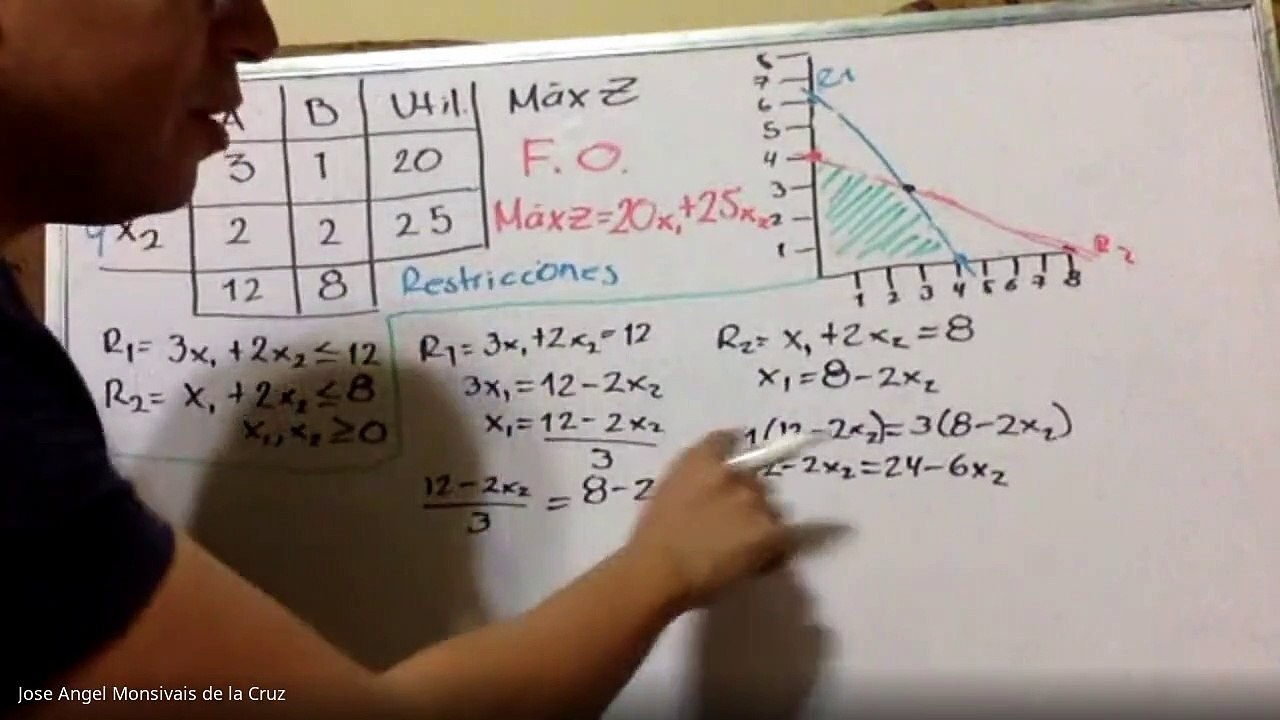 A B Util. Máx Z
3 1 20 F. O.
x₂ 2 2 25 Máx Z=20x₁+25x₂
12 8 Restricciones
R₁= 3x₁+2x₂≤12
R₂= x₁+2x₂≤8
x₁, x₂≥0
R₁=3x₁+2x₂=12
3x₁=12-2x₂
x₁=12-2x₂
3
12-2x₂ = 8-2
3
R₂= x₁+2x₂=8
x₁=8-2x₂
1(12-2x₂)=3(8-2x₂)
2-2x₂=24-6x₂
8
7 R1
6
5
4
3
2
1
R2
1 2 3 4 5 6 7 8
Jose Angel Monsivais de la Cruz